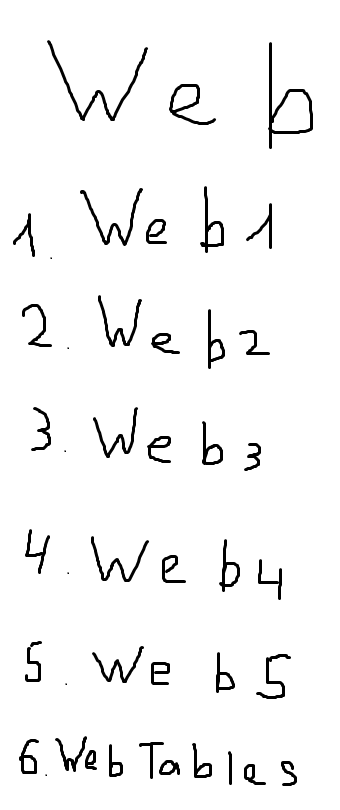 Web
1. Web1
2. Web2
3. Web3
4. Web4
5. Web5
6. Web Tables